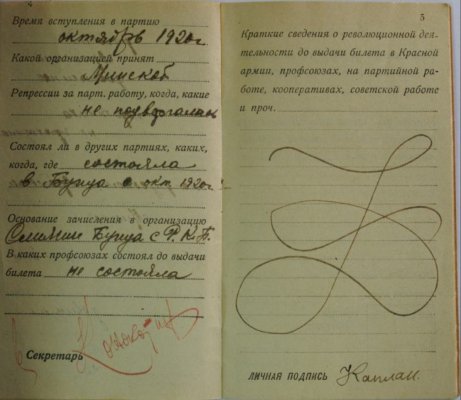 4
Время вступления в партию
октябрь 1920г
Какой организацией принят
Минской
Репрессии за парт. работу, когда, какие
не подвергалась
Состоял ли в других партиях, каких,
когда, где состояла
в Бунда с окт 1920г
Основание зачисления в организацию
Слияние Бунда с Р.К.П.
В каких профсоюзах состоял до выдачи
билета не состояла
Секретарь
5
Краткие сведения о революционной дея-
тельности до выдачи билета в Красной
армии, профсоюзах, на партийной ра-
боте, кооперативах, советской работе
и проч.
ЛИЧНАЯ ПОДПИСЬ Каплан